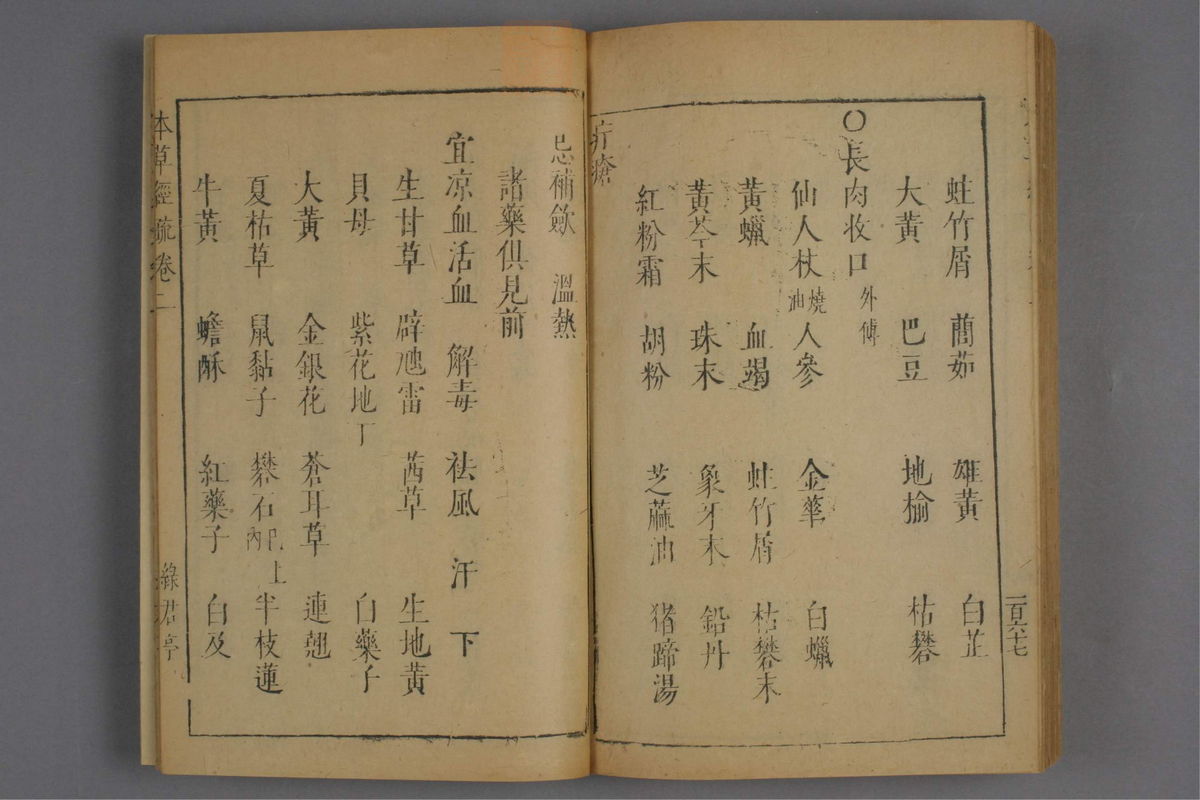 蛀竹屑 䕡茹 雄黃 白芷
大黃 巴豆 地榆 枯礬
〇長肉收口 外傅
仙人杖 燒油 人參 金華 白蠟
黃蠟 血竭 蛀竹屑 枯礬末
黃芩末 珠末 象牙末 鉛丹
紅粉霜 胡粉 芝蔴油 猪蹄湯
疔瘡
忌補斂 溫熱
諸藥俱見前
宜凉血活血 解毒 祛風 汗 下
生甘草 辟虺雷 茜草 生地黃
貝母 紫花地丁 白藥子
大黃 金銀花 蒼耳草 連翹
夏枯草 鼠黏子 礬石 內 已上 半枝蓮
牛黃 蟾酥 紅藥子 白及
本草經疏卷二 綠君亭
一百六十七